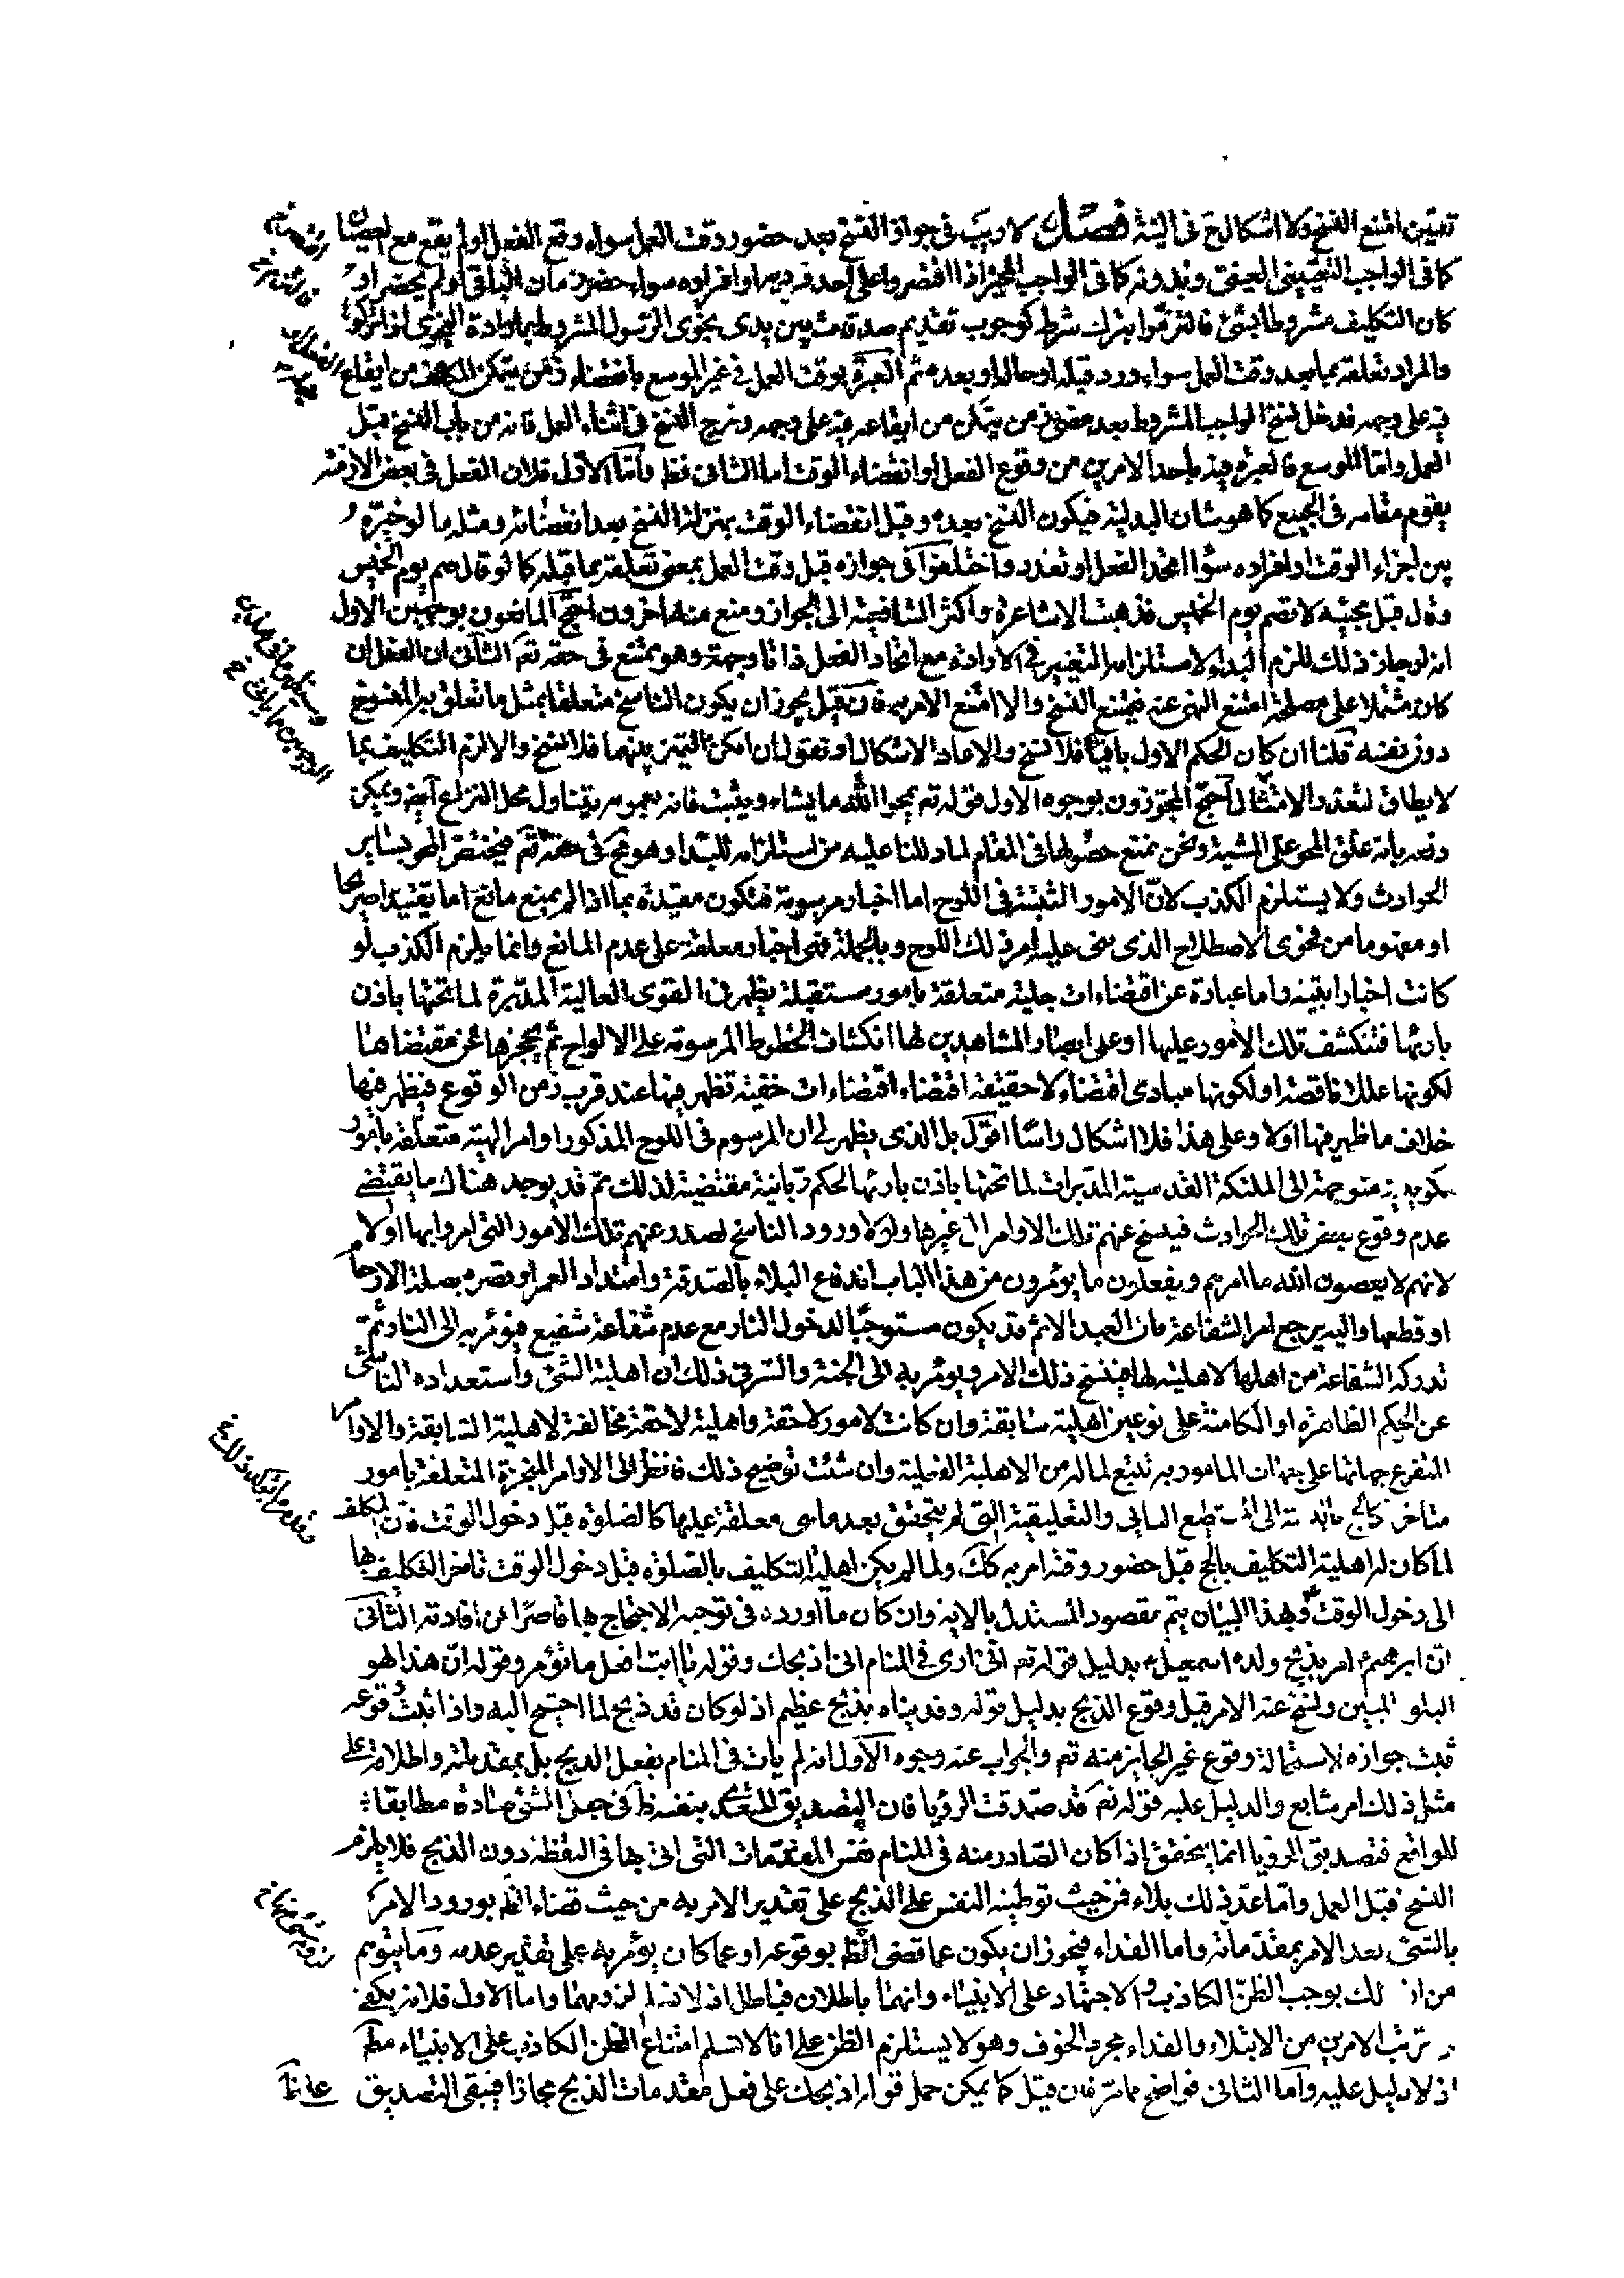 تعيّن امتنع النسخ ولا اشكال ح في الية فصل لا ريب في جواز النسخ بعد حضور وقت العمل سواء وقع الفعل او لم يقع مع العصيان
كما في الواجب التعييني العيني وبدونه كما في الواجب المخيّر اذا اقتصروا على احد فرديه او افراده سواء حضر زمان الباقي او لم يحضر او
كان التكليف مشروطا بشئ فالتزموا بترك شرطه كوجوب تقديم صدقة بين يدى نجوى الرسول المشروط بارادة النجوى لو تركوا
والمراد تعلقه بما بعد وقت العمل سواء ورد قبله او حاله او بعده ثم العبرة بوقت العمل في غير الموسع بانقضاء زمن يتمكن المكلف من ايقاع
فيه على وجهه فدخل نسخ الواجب المشروط بعد مضى زمن يتمكن من ايقاعه فيه على وجهه وخرج النسخ في اثناء العمل فانه من باب النسخ قبل
العمل وامّا الموسع فالعبرة فيه باحد الامرين من وقوع الفعل او انقضاء الوقت اما الثاني فظ وامّا الاوّل فلان الفعل في بعض الازمنة
يقوم مقامه في الجميع كما هو شان البدلية فيكون النسخ بعده وقبل انقضاء الوقت بمنزلة النسخ بعد انقضائه ومثله ما لو خيّره
بين اجزاء الوقت او افراده سواء اتحد الفعل او تعدد واختلفوا في جوازه قبل وقت العمل بمعنى تعلقه بما قبله كما لو قال صم يوم الخميس
وقال قبل مجيئه لا تصم يوم الخميس فذهبت الاشاعرة واكثر الشافعية الى الجواز ومنع منه اخرون احتجّ المانعون بوجهين الاول
انه لو جاز ذلك للزم البداء لاستلزامه التغيير في الارادة مع اتحاد الفعل ذاتا وجهة وهو ممتنع في حقه تعم الثاني ان الفعل ان
كان مشتملا على مصلحة امتنع النهى عنه فيمتنع النسخ والا امتنع الامر به فان قيل يجوز ان يكون الناسخ متعلقا بمثل ما تعلق به المنسوخ
دون نفسه قلنا ان كان الحكم الاول باقيا فلا نسخ والا عاد الاشكال او نقول ان امكن التميز بينهما فلا نسخ والا لزم التكليف بما
لا يطاق لتعذر الامتثال احتجّ المجوّزون بوجوه الاول قوله تم يمحوا الله ما يشاء ويثبت فانه بعمومه يتناول محل النزاع ايض ويمكن
دفعه بانه علق المحو على المشية ونحن نمنع حصولها في المقام لما دللنا عليه من استلزامه للبداء وهو مح في حقه تم فيختص المحو بساير
الحوادث ولا يستلزم الكذب لانّ الامور المثبتة في اللوح اما اخبار مرسومة فتكون مقيدة بما اذا لم يمنع مانع اما تقييدا صريحا
او مفهوما من فحوى الاصطلاح الذى نحى عليه امر ذلك اللوح وبالجملة فهى اخبار معلقة على عدم المانع وانما يلزم الكذب لو
كانت اخبارا بتية واما عبارة عن اقتضاءات جلية متعلقة بامور مستقبلة يظهر في القوى العالية المدبّرة لما تحتها باذن
بارئها فتنكشف تلك الامور عليها او على ابصار المشاهدين لها انكشاف الخطوط المرسومة على الالواح ثم يحجزها عن مقتضاها
لكونها عللا ناقصة او لكونها مبادى اقتضاء لا حقيقة اقتضاء اقتضاءات خفية تظهر فيها عند قرب زمن الوقوع فيظهر فيها
خلاف ما ظهر فيها اولا وعلى هذا فلا اشكال راسًا اقول بل الذى يظهر لى ان المرسوم في اللوح المذكور اوامر الهية متعلقة بامور
تكوينية متوجهة الى الملئكة القدسية المدبّرات لما تحتها باذن بارئها لحكم ربّانية مقتضية لذلك ثم قد يوجد هناك ما يقتضى
عدم وقوع بعض تلك الحوادث فينسخ عنهم تلك الاوامر الى غيرها ولولا ورود الناسخ لصدر عنهم تلك الامور التى امروا بها اولا
لانهم لا يعصون الله ما امرهم ويفعلون ما يؤمرون من هذا الباب اندفاع البلاء بالصدقة وامتداد العمر او قصره بصلة الارحام
او قطعها واليه يرجع امر الشفاعة فان العبد الاثم قد يكون مستوجبًا لدخول النار مع عدم شفاعة شفيع فيؤمر به الى النار ثمّ
تدركه الشفاعة من اهلها لاهليته لها فينسخ ذلك الامر ويؤمر به الى الجنة والسّر في ذلك ان اهلية الشئ واستعداده الناشئ
عن الحكم الظاهرة او الكامنة على نوعين اهلية سابقة وان كانت لامور لاحقة واهلية لاحقة مخالفة لاهلية السابقة والاوامر
المتفرع جهاتها على جهات المامور به تتبع لما له من الاهلية الفعلية وان شئت توضيح ذلك فانظر الى الاوامر المنجزة المتعلقة بامور
متاخرة كالحج بالنسبة الى المستطيع النائى والتعليقية التى لم يتحقق بعد ماهى معلقة عليها كالصلوة قبل دخول الوقت فان المكلف
لما كان له اهلية التكليف بالحج قبل حضور وقته امر به كك ولما لم يكن اهلية التكليف بالصّلوة قبل دخول الوقت تاخر التكليف بها
الى دخول الوقت وبهذا البيان يتم مقصود المستدل بالاية وان كان ما اورده في توجيه الاحتجاج بها قاصرًا عن افادته الثانى
انّ ابرهيم امر بذبح ولده اسمعيل بدليل قوله تم انّى ارى في المنام انى اذبحك وقوله يا ابت افعل ما تؤمر وقوله انّ هذا لهو
البلاء المبين ونسخ عنه الامر قبل وقوع الذبح بدليل قوله وفديناه بذبح عظيم اذ لو كان قد ذبح لما احتيج اليه واذا ثبت وقوعه
ثبت جوازه لاستحالة وقوع غير الجايز منه تعم والجواب عنه وجوه الاول انه لم يات في المنام بفعل الذبح بل بمقدماته واطلاقه على
مثل ذلك امر شايع والدليل عليه قوله تم قد صدقت الرؤيا فان التصديق المتعدى بنفسه ظ في جعل الشئ صادقا مطابقا
للواقع فتصديق الرؤيا انما يتحقق اذا كان الصادر منه في المنام نفس المقدّمات التى اتى بها في اليقظة دون الذبح فلا يلزم
النسخ قبل العمل وامّا عدّ ذلك بلاء فمن حيث توطينه النفس على الذبح على تقدير الامر به من حيث قضاء الظ بورود الامر
بالشئ بعد الامر بمقدّماته واما الفداء فيجوز ان يكون عما قضى الظ بوقوعه او عما كان يؤمر به على تقدير عدمه وما يتوهم
من ان ذلك يوجب الظنّ الكاذب والاجتهاد على الانبياء وانهما باطلان فباطل اذ لا نسلم لزومهما واما الاول فلانه يكفى
ترتب الامرين من الابتلاء والفداء مجرد الخوف وهو لا يستلزم الظن على انا لا نسلم امتناع الظن الكاذب على الانبياء مطّ
اذ لا دليل عليه وامّا الثانى فواضح مما مرّ فان قيل كما يمكن حمل قوله اذبحك على فعل مقدمات الذبح مجازا فيبقى التصديق